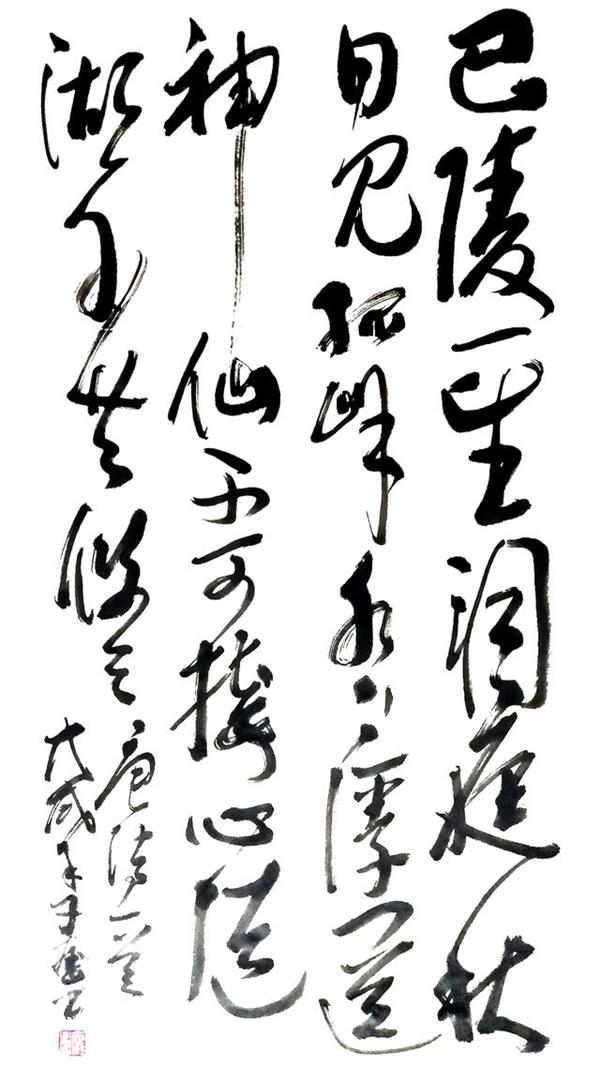 巴陵一望洞庭秋
日見孤峰水上浮聞道
神仙不可接心隨
湖水共悠悠
唐詩一首
戊戌年